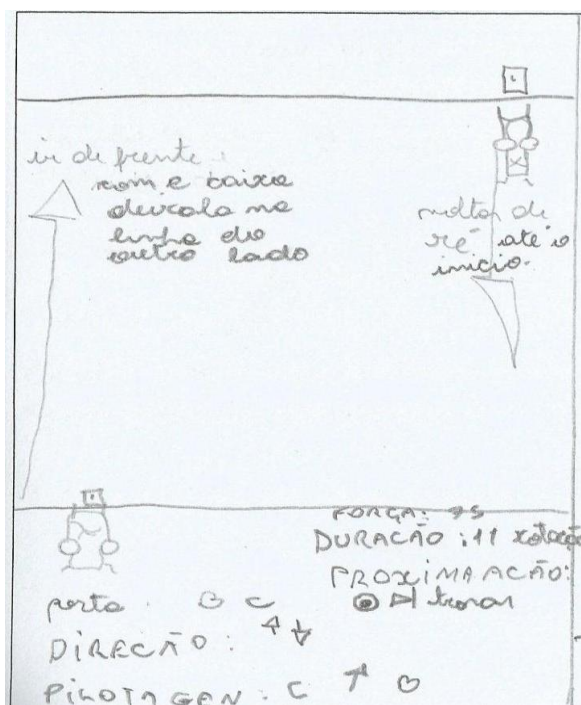 ir de frente
com a caixa
deixala na
linha do
outro lado
voltar de
ré até o
inicio.
FORÇA: 75
DURAÇÃO: 11 rotação
PROXIMA ACÃO:
travar
porta: B C
DIRECÃO:
PILOTAGEN: C B